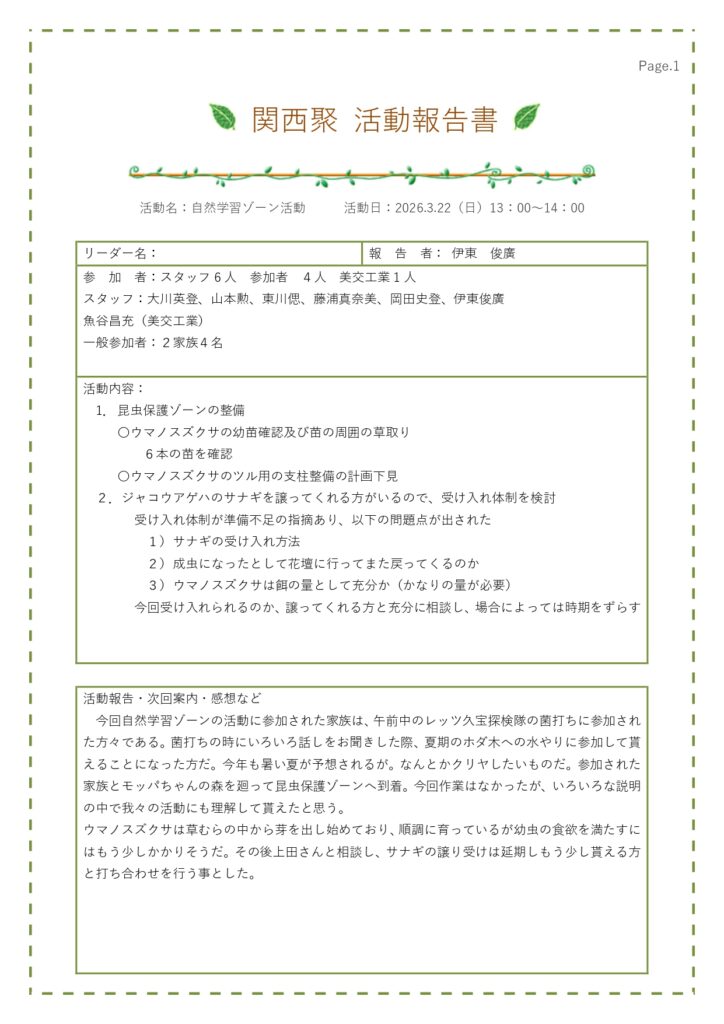 Page.1
関西聚 活動報告書
活動名：自然学習ゾーン活動　　　活動日：2026.3.22（日）13：00～14：00
リーダー名：
報　告　者： 伊東　俊廣
参　加　者：スタッフ６人　参加者　４人　美交工業１人
スタッフ：大川英登、山本勲、東川偲、藤浦真奈美、岡田史登、伊東俊廣
魚谷昌充（美交工業）
一般参加者：２家族４名
活動内容：
1．昆虫保護ゾーンの整備
〇ウマノスズクサの幼苗確認及び苗の周囲の草取り
６本の苗を確認
〇ウマノスズクサのツル用の支柱整備の計画下見
２．ジャコウアゲハのサナギを譲ってくれる方がいるので、受け入れ体制を検討
受け入れ体制が準備不足の指摘あり、以下の問題点が出された
１）サナギの受け入れ方法
２）成虫になったとして花壇に行ってまた戻ってくるのか
３）ウマノスズクサは餌の量として充分か（かなりの量が必要）
今回受け入れられるのか、譲ってくれる方と充分に相談し、場合によっては時期をずらす
活動報告・次回案内・感想など
今回自然学習ゾーンの活動に参加された家族は、午前中のレッツ久宝探検隊の菌打ちに参加され
た方々である。菌打ちの時にいろいろ話しをお聞きした際、夏期のホダ木への水やりに参加して貰
えることになった方だ。今年も暑い夏が予想されるが。なんとかクリヤしたいものだ。参加された
家族とモッパちゃんの森を廻って昆虫保護ゾーンへ到着。今回作業はなかったが、いろいろな説明
の中で我々の活動にも理解して貰えたと思う。
ウマノスズクサは草むらの中から芽を出し始めており、順調に育っているが幼虫の食欲を満たすに
はもう少しかかりそうだ。その後上田さんと相談し、サナギの譲り受けは延期しもう少し貰える方
と打ち合わせを行う事とした。